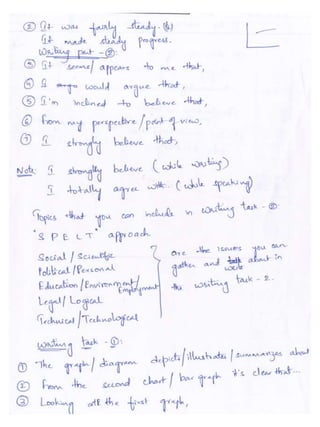 ② It was fairly steady. (4)
It made steady progress.
Writing part - ②:
③ It seems/ appears to me that,
④ I would argue that,
⑤ I'm inclined to believe that,
⑥ From my perspective / point of view.
⑦ I strongly believe that,
Note: I strongly believe (while writing)
I totally agree with. (while speaking)
Topics that you can include in writing task - ②
"S P E L T" approach.
Social / Scientific
Political / Personal
Education / Environment / Employment
Legal / Logical
Technical / Technological
are the issues you can
gather and write about in
the writing task - 2.
Writing task - ①:
① The graph / diagram depicts / illustrates / summarizes about
② From the second chart / bar graph it's clear that...
③ Looking at the first graph,